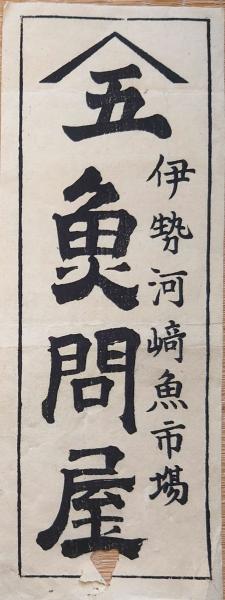 伊勢河﨑魚市場
𠆢五魚問屋